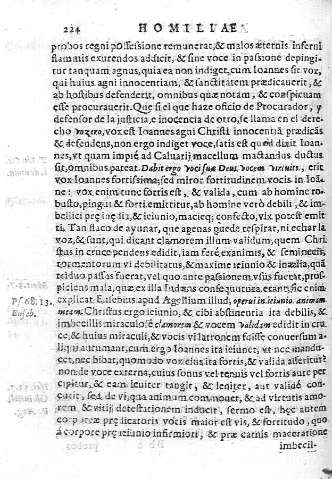 224 HOMILIAE
probos regni possessione remunerat, & malos æternis inferni
flammis exurendos addicit, & sine voce in passione depingi-
tur tanquam agnus, quia ea non indiget, cum Ioannes sit vox,
qui huius agni innocentiam, & sanctitatem prædicauerit, &
ab hostibus defenderit, omnibus quæ notam, & conspicuam
esse procurauerit. Que si el que haze oficio de Procurador, y
defensor de la justicia, e inocencia de otro, se llama en el dere-
cho vozero, vox est Ioannes agni Christi innocentiã prædicãs
& defendens, non ergo indiget voce, satis est quod dixit Ioan-
nes, vt quam impiè ad Caluarij macellum mactandus ductus
sit, omnibus pateat. Dabit ergo voci suæ Deus, vocem virtutis, erit
vox Ioannis fortissima, sed miror fortitudinem vocis in Ioã-
ne: vox enim tunc fortis est, & valida, cum ab homine ro-
busto, pingui & forti emittitur, ab homine verò debili, & im-
becilli præ inedia, & ieiunio, macieq; confecto, vix potest emit-
ti. Tan flaco de ayunar, que apenas puede respirar, ni echar la
voz, & sunt, qui dicant clamorem illum validum, quem Chri-
stus in cruce pendens edidit, iam ferè exanimis, &
tormentorum vi debilitatus, & maxime triunio, & inædia, quã
triduo passus fuerat, vel quo ante passionem, vsus fuerat,
explicat Eusebius apud Agellium illud, operui in ieiunio animam
Psf 68. 13.
Euseb.
meam: Christus ergo ieiunio, & cibi abstinentia ita debilis, &
imbecillis miraculosè clamorem & vocem validam edidit in cru-
ce, & huius miraculi, & vocis vi latronem fuisse conuersum a-
liqui autumant, cum ergo Ioannes ita ieiunet, vt nec mandu-
cet, nec bibat, quomodo vox eius ita fortis, & valida
de voce externa, cuius sonus vel tenuis vel fortis aure per-
cipitur, & eam leuiter tangit, & leniter, aut validè con-
cutit, sed, de vi, qua animum commouet, & ad virtutis amo-
rem, & vitij detestationem inducit, sermo est, hęc autem
corporeæ prædicatoris vocis maior est vis, & fortitudo, quo
à corpore præ ieiunio infirmiori, & præ carnis maceratione
imbecil-